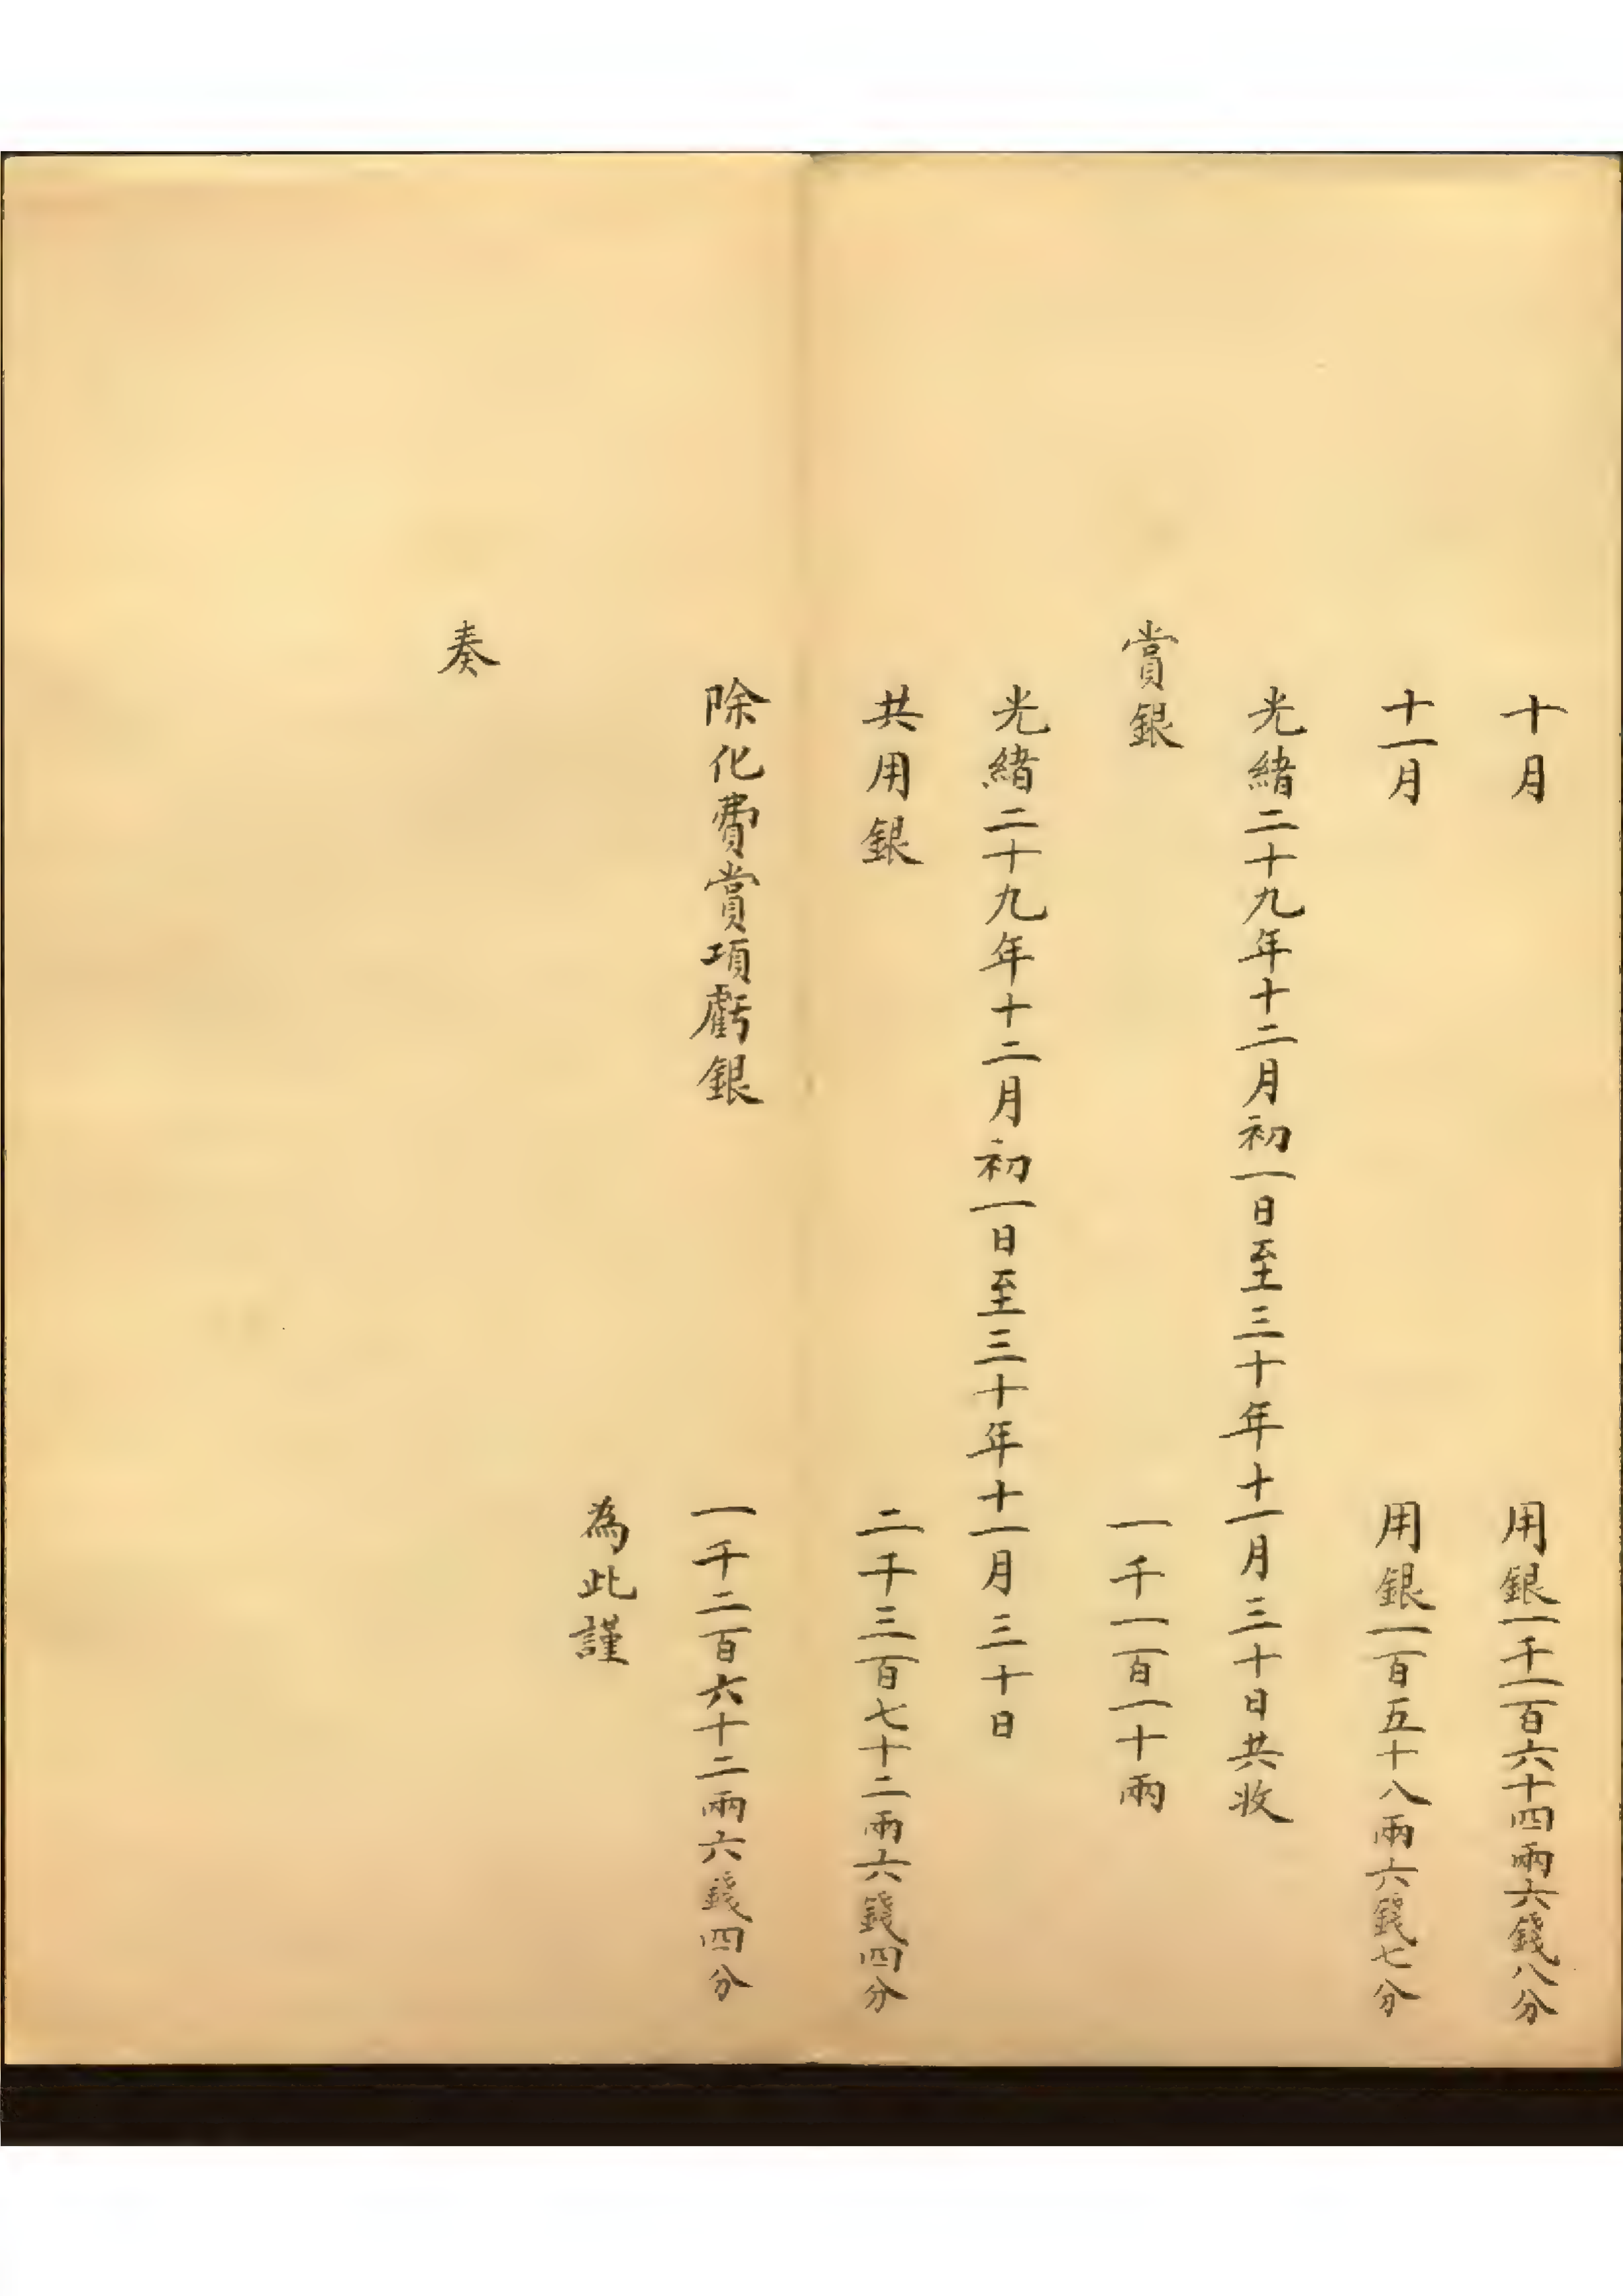 十月 用銀一千一百六十四兩六錢八分
十一月 用銀一百五十八兩六錢七分
光緒二十九年十二月初一日至三十年十一月三十日共收
賞銀 一千一百一十兩
光緒二十九年十二月初一日至三十年十一月三十日
共用銀 二千三百七十二兩六錢四分
除化費賞項虧銀 一千二百六十二兩六錢四分
為此謹
奏